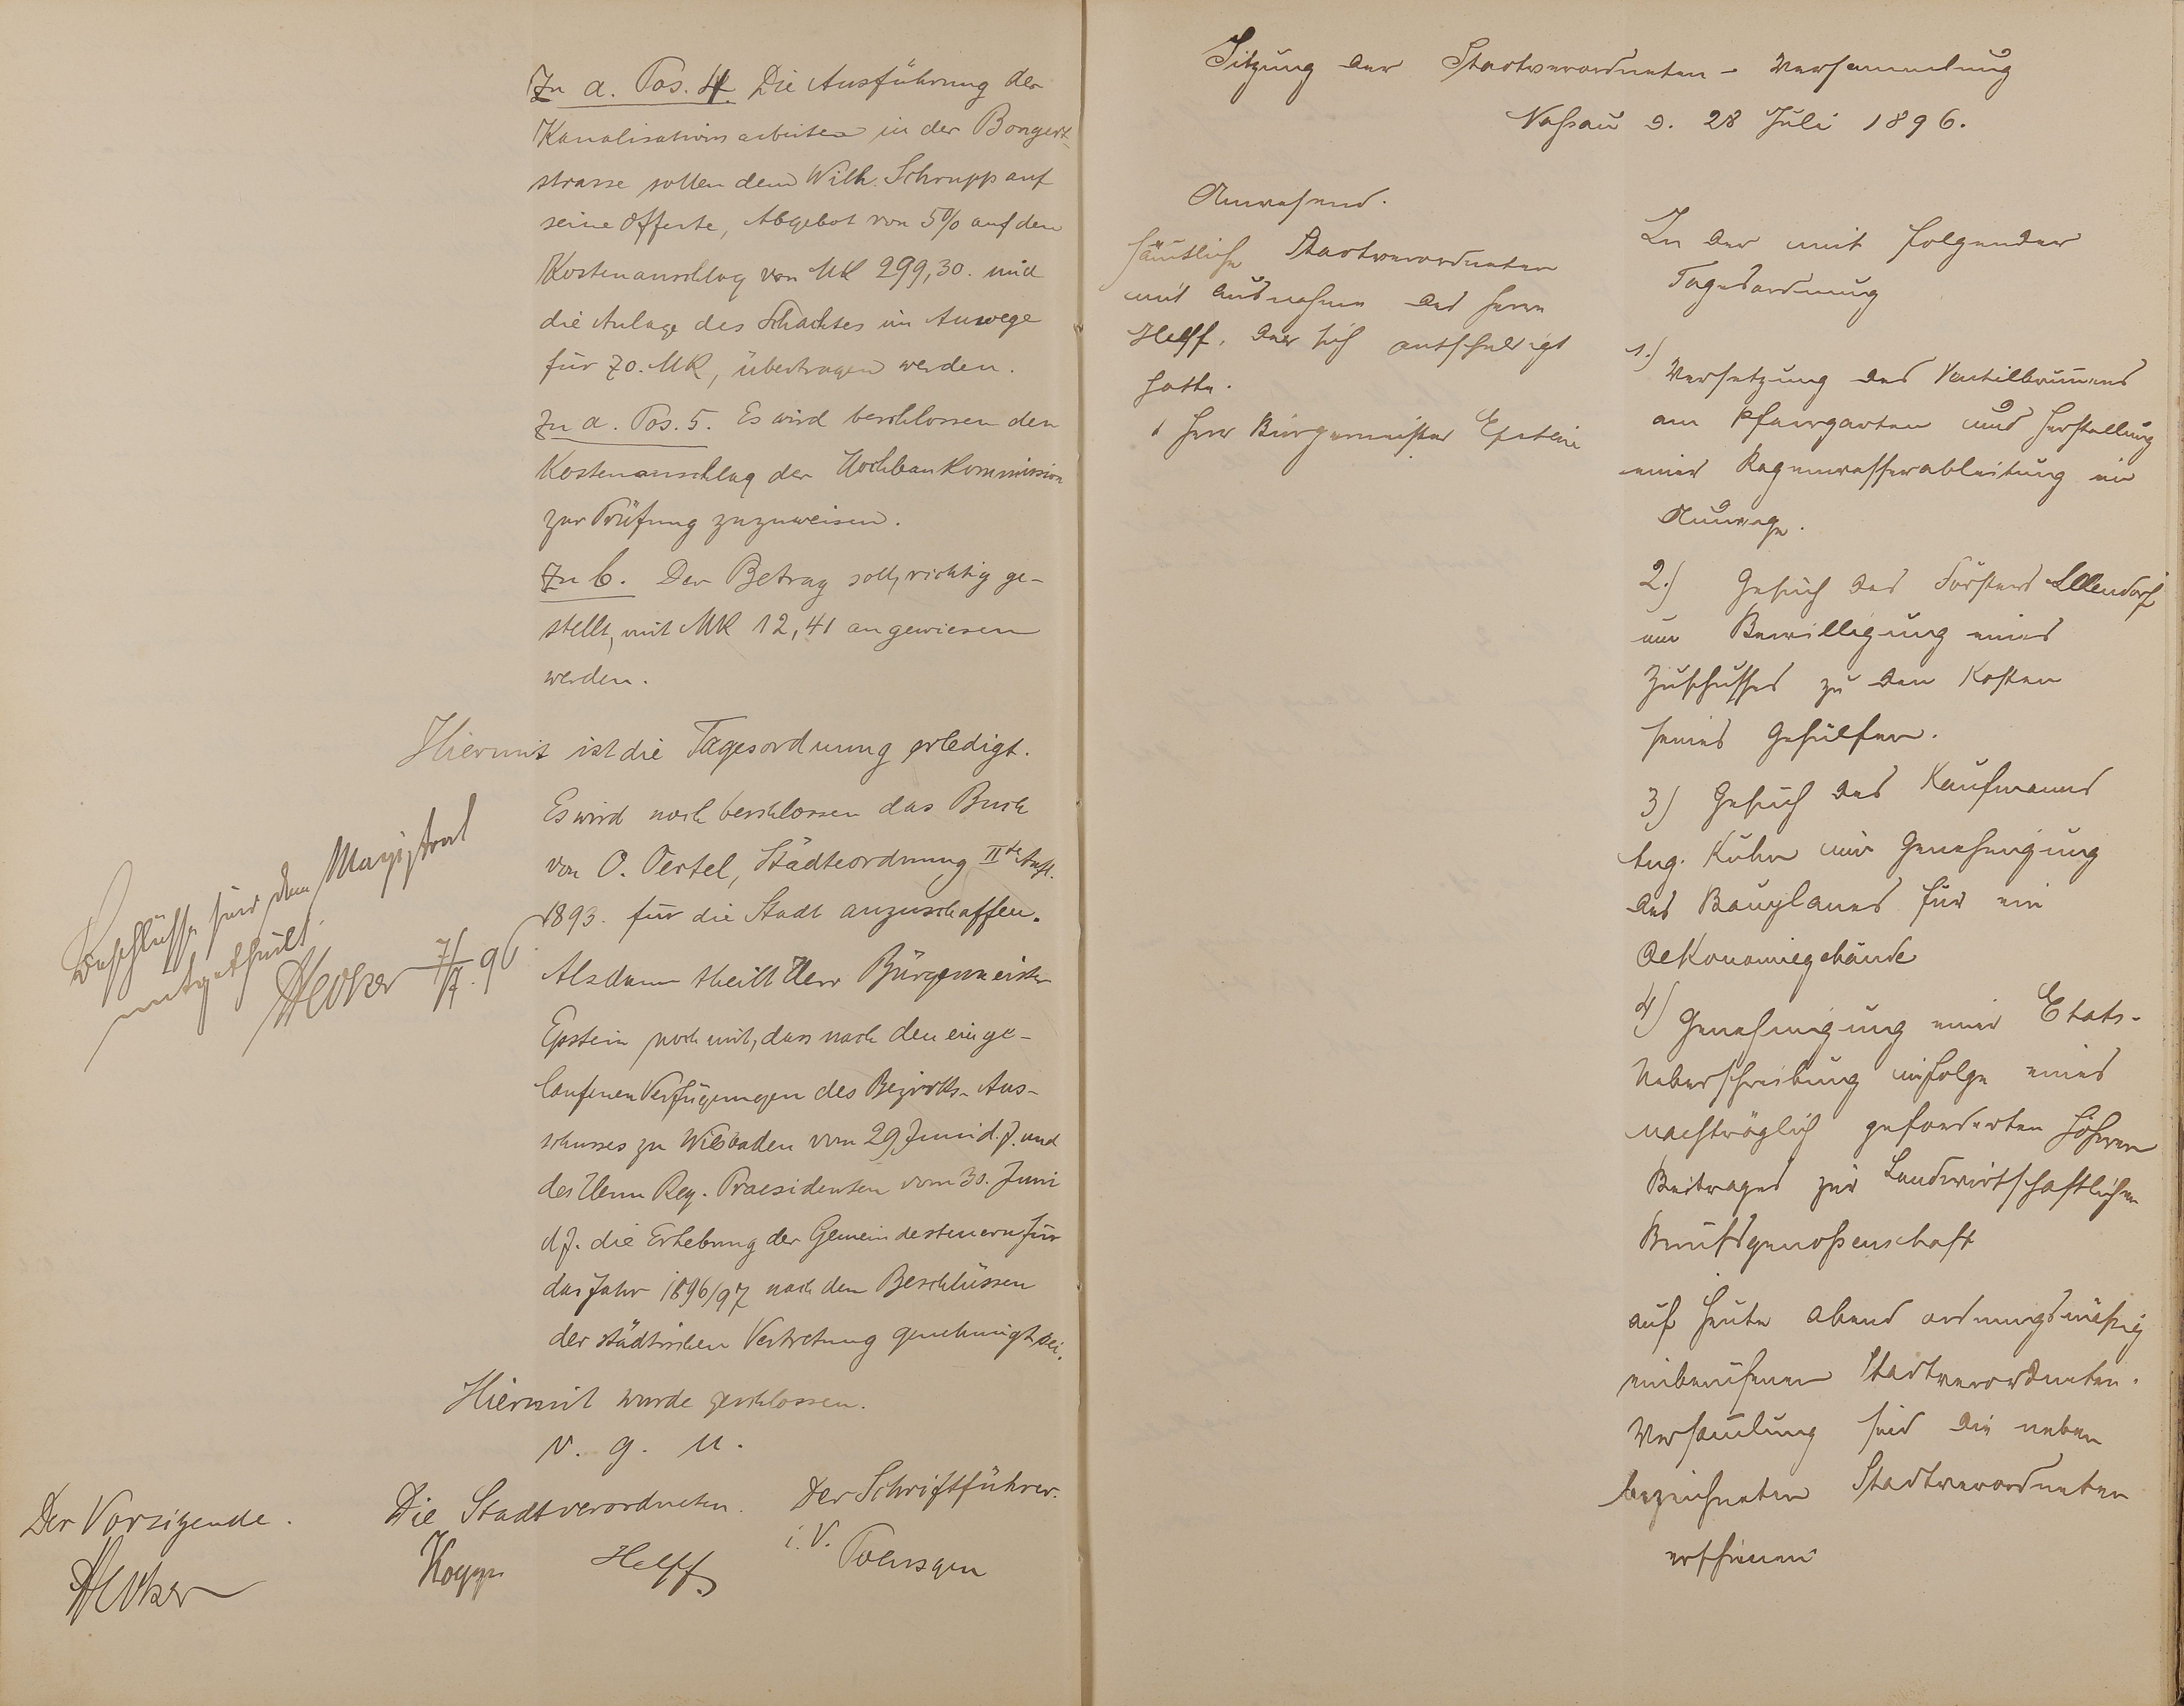 Zu a. Pos. 4. Die Ausführung der
Kanalisationsarbeiten in der Bongert-
strasse sollen dem Wilh. Schrupp auf
seine Offerte, Abgebot von 5% auf den
Kostenanschlag von Mk 299,30. und
die Anlage des Schachtes im Auwege
für 70. Mk, übertragen werden.
Zu a. Pos. 5. Es wird beschlossen den
Kostenanschlag der Hochbaukommission
zur Prüfung zuzuweisen.
Zu b. Der Betrag soll, richtig ge-
stellt, mit Mk 12,41 angewiesen
werden.
Hiermit ist die Tagesordnung erledigt.
Es wird noch beschlossen das Buch
von O. Oertel, Städteordnung IIte Aufl.
1893. für die Stadt anzuschaffen.
Beschlüsse sind dem Magistrat
mitgetheilt.
7/7. 96
Alsdann theilt Herr Bürgermeister
Epstein noch mit, dass nach den einge-
laufenen Verfügungen des Bezirks-Aus-
schusses zu Wiesbaden vom 29 Juni d. J. und
des Herrn Reg. Praesidenten vom 30. Juni
d J. die Erhebung der Gemeindesteuern für
das Jahr 1896/97 nach den Beschlüssen
der städtischen Vertretung genehmigt sei.
Hiermit wurde geschlossen.
v. g. u.
Der Vorsitzende.
Die Stadtverordneten.
Der Schriftführer.
i. V.
Kopp
Helff
Sitzung der Stadtverordneten-Versammlung
Nassau d. 28 Juli 1896.
Anwesend.
sämtliche Stadtverordneten
mit Ausnahme des Herrn
Helff, der sich entschuldigt
hatte.
1 Herr Bürgermeister Epstein
In der mit folgender
Tagesordnung
1.) Versetzung des Ventilbrunnens
am Pfarrgarten und Herstellung
einer Regenwasserableitung im
Auwege.
2.) Gesuch des Försters Ellendorf
um Bewilligung eines
Zuschusses zu den Kosten
seines Gehülfen.
3) Gesuch des Kaufmanns
Aug. Kuhn um Genehmigung
des Bauplanes für ein
Oekonomiegebäude
4) Genehmigung einer Etats-
Ueberschreibung infolge eines
nachträglich geforderten höheren
Beitrages zur Landwirtschaftlichen
Berufsgenoßenschaft
auf heute abend ordnungsmäßig
einberufenen Stadtverordneten-
Versamlung sind die neben
bezeichneten Stadtverordneten
erschienen